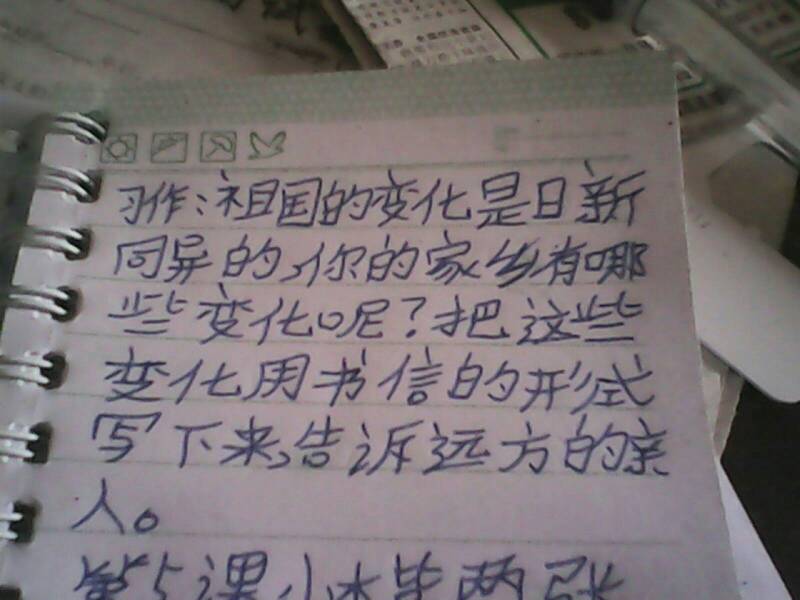 习作:祖国的变化是日新
同异的,你的家乡有哪
些变化呢?把这些
变化用书信的形式
写下来,告诉远方的亲
人。
第5课小木毕两张